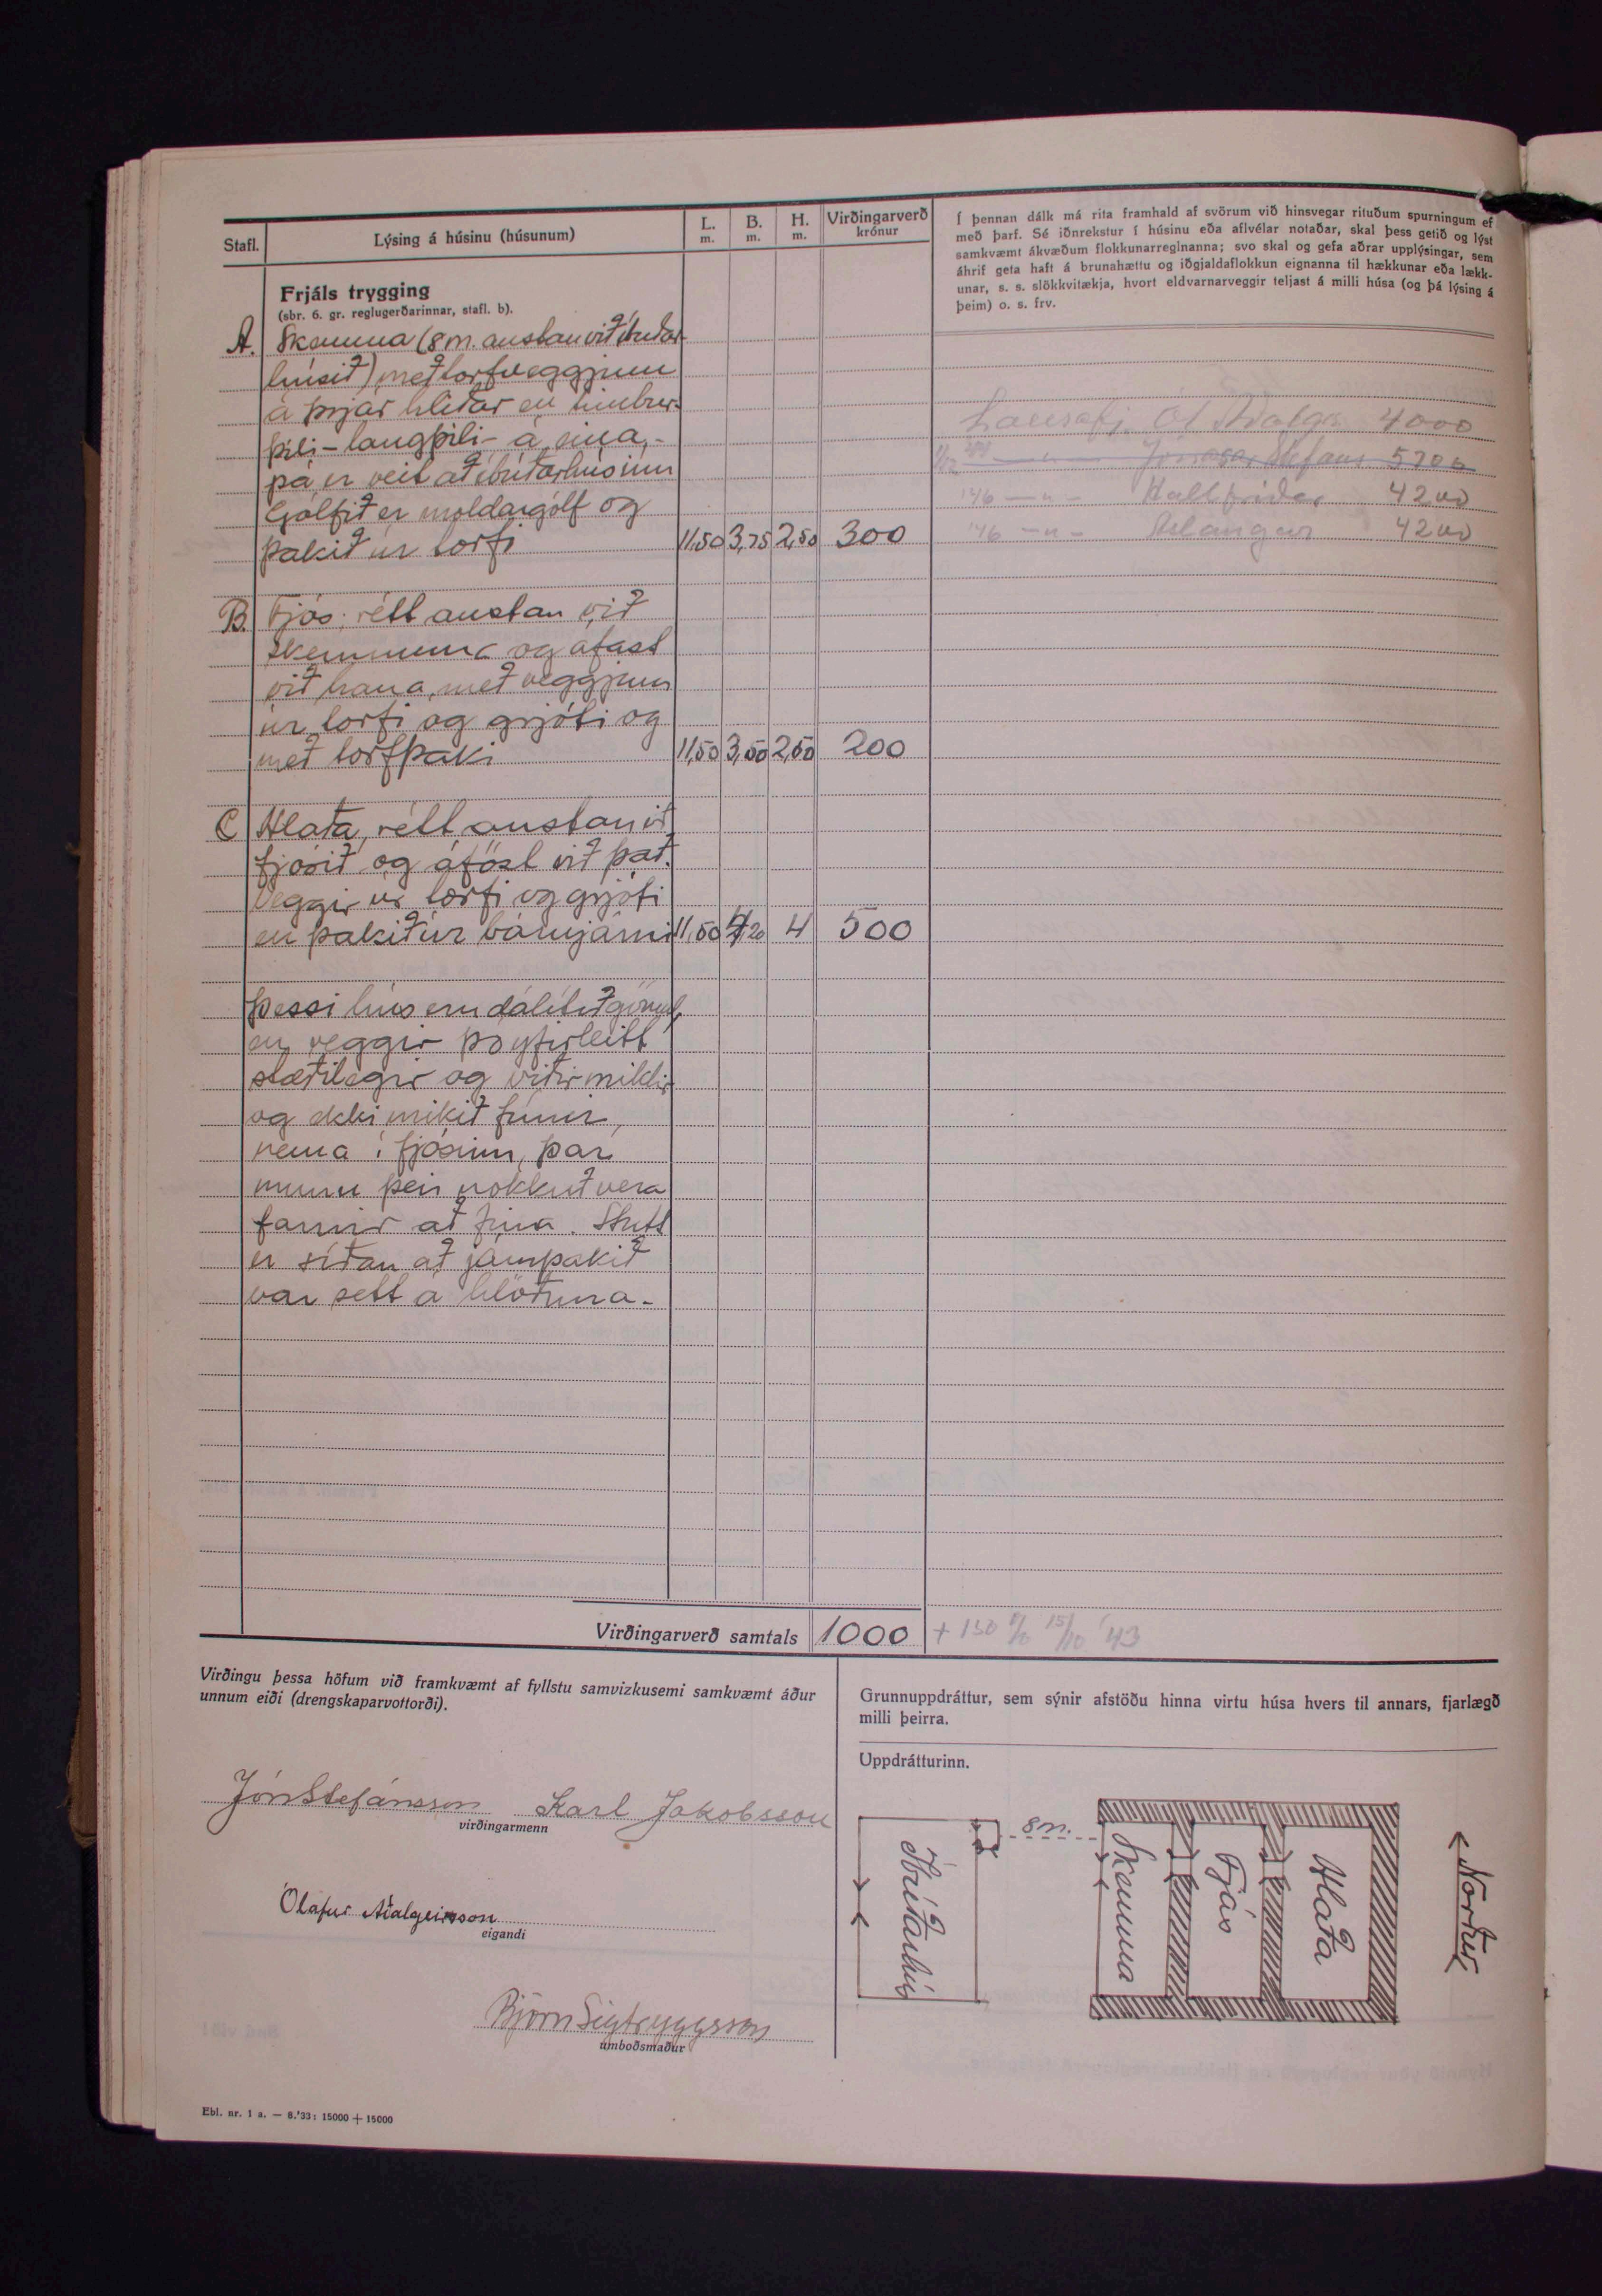 Stafl.
Lýsing á húsinu (húsunum)
L.
m.
B.
m.
H.
m.
Virðingarverð
krónur
Í þennan dálk má rita framhald af svörum við hinsvegar rituðum spurningum ef
með þarf. Sé iðnrekstur í húsinu eða aflvélar notaðar, skal þess getið og lýst
samkvæmt ákvæðum flokkunarreglnanna; svo skal og gefa aðrar upplýsingar, sem
áhrif geta haft á brunahættu og iðgjaldaflokkun eignanna til hækkunar eða lækk-
unar, s. s. slökkvitækja, hvort eldvarnarveggir teljast á milli húsa (og þá lýsing á
þeim) o. s. frv.
Frjáls trygging
(sbr. 6. gr. reglugerðarinnar, stafl. b).
A. Skemma (8 m. austan við íbúðar-
húsið) með torfveggjum
á þrjár hliðar en timbur-
þili - langþili - á eina, -
þá er veit að íbúðarhúsinu
Gólfið er moldargólf og
þakið úr torfi 11,50 3,75 2,50 300
4000
Stefans 5700
'46 — " — Hallfríðar 4200
'46 — " — 4200
B. Fjós, rétt austan við
skemmuna og áfast
við hana, með veggjum
úr torfi og grjóti og
með torfþaki 11,50 3,50 2,50 200
C Hlaða, rétt austan við
fjósið og áföst við það.
Veggir úr torfi og grjóti
en þakið úr bárujárni 11,50 4,20 4 500
Þessi hús eru dálítið gömul,
en veggir þó yfirleitt
stæðilegir og viðir mildir
og ekki mikið fúnir,
nema í fjósinu, þar
munu þeir nokkuð vera
farnir að fúna. Stutt
er síðan að járnþakið
var sett á hlöðuna.
Virðingarverð samtals 1000 + 130 % 15/10 '43
Virðingu þessa höfum við framkvæmt af fyllstu samvizkusemi samkvæmt áður
unnum eiði (drengskaparvottorði).
Jón Stefánsson Karl Jakobsson
virðingarmenn
Ólafur Aðalgeirsson
eigandi
Björn Sigtryggsson
umboðsmaður
Grunnuppdráttur, sem sýnir afstöðu hinna virtu húsa hvers til annars, fjarlægð
milli þeirra.
Uppdrátturinn.
Íbúðarhús
8 m.
Skemma
Fjós
Hlaða
Norður
Ebl. nr. 1 a. — 8.'33: 15000 + 15000